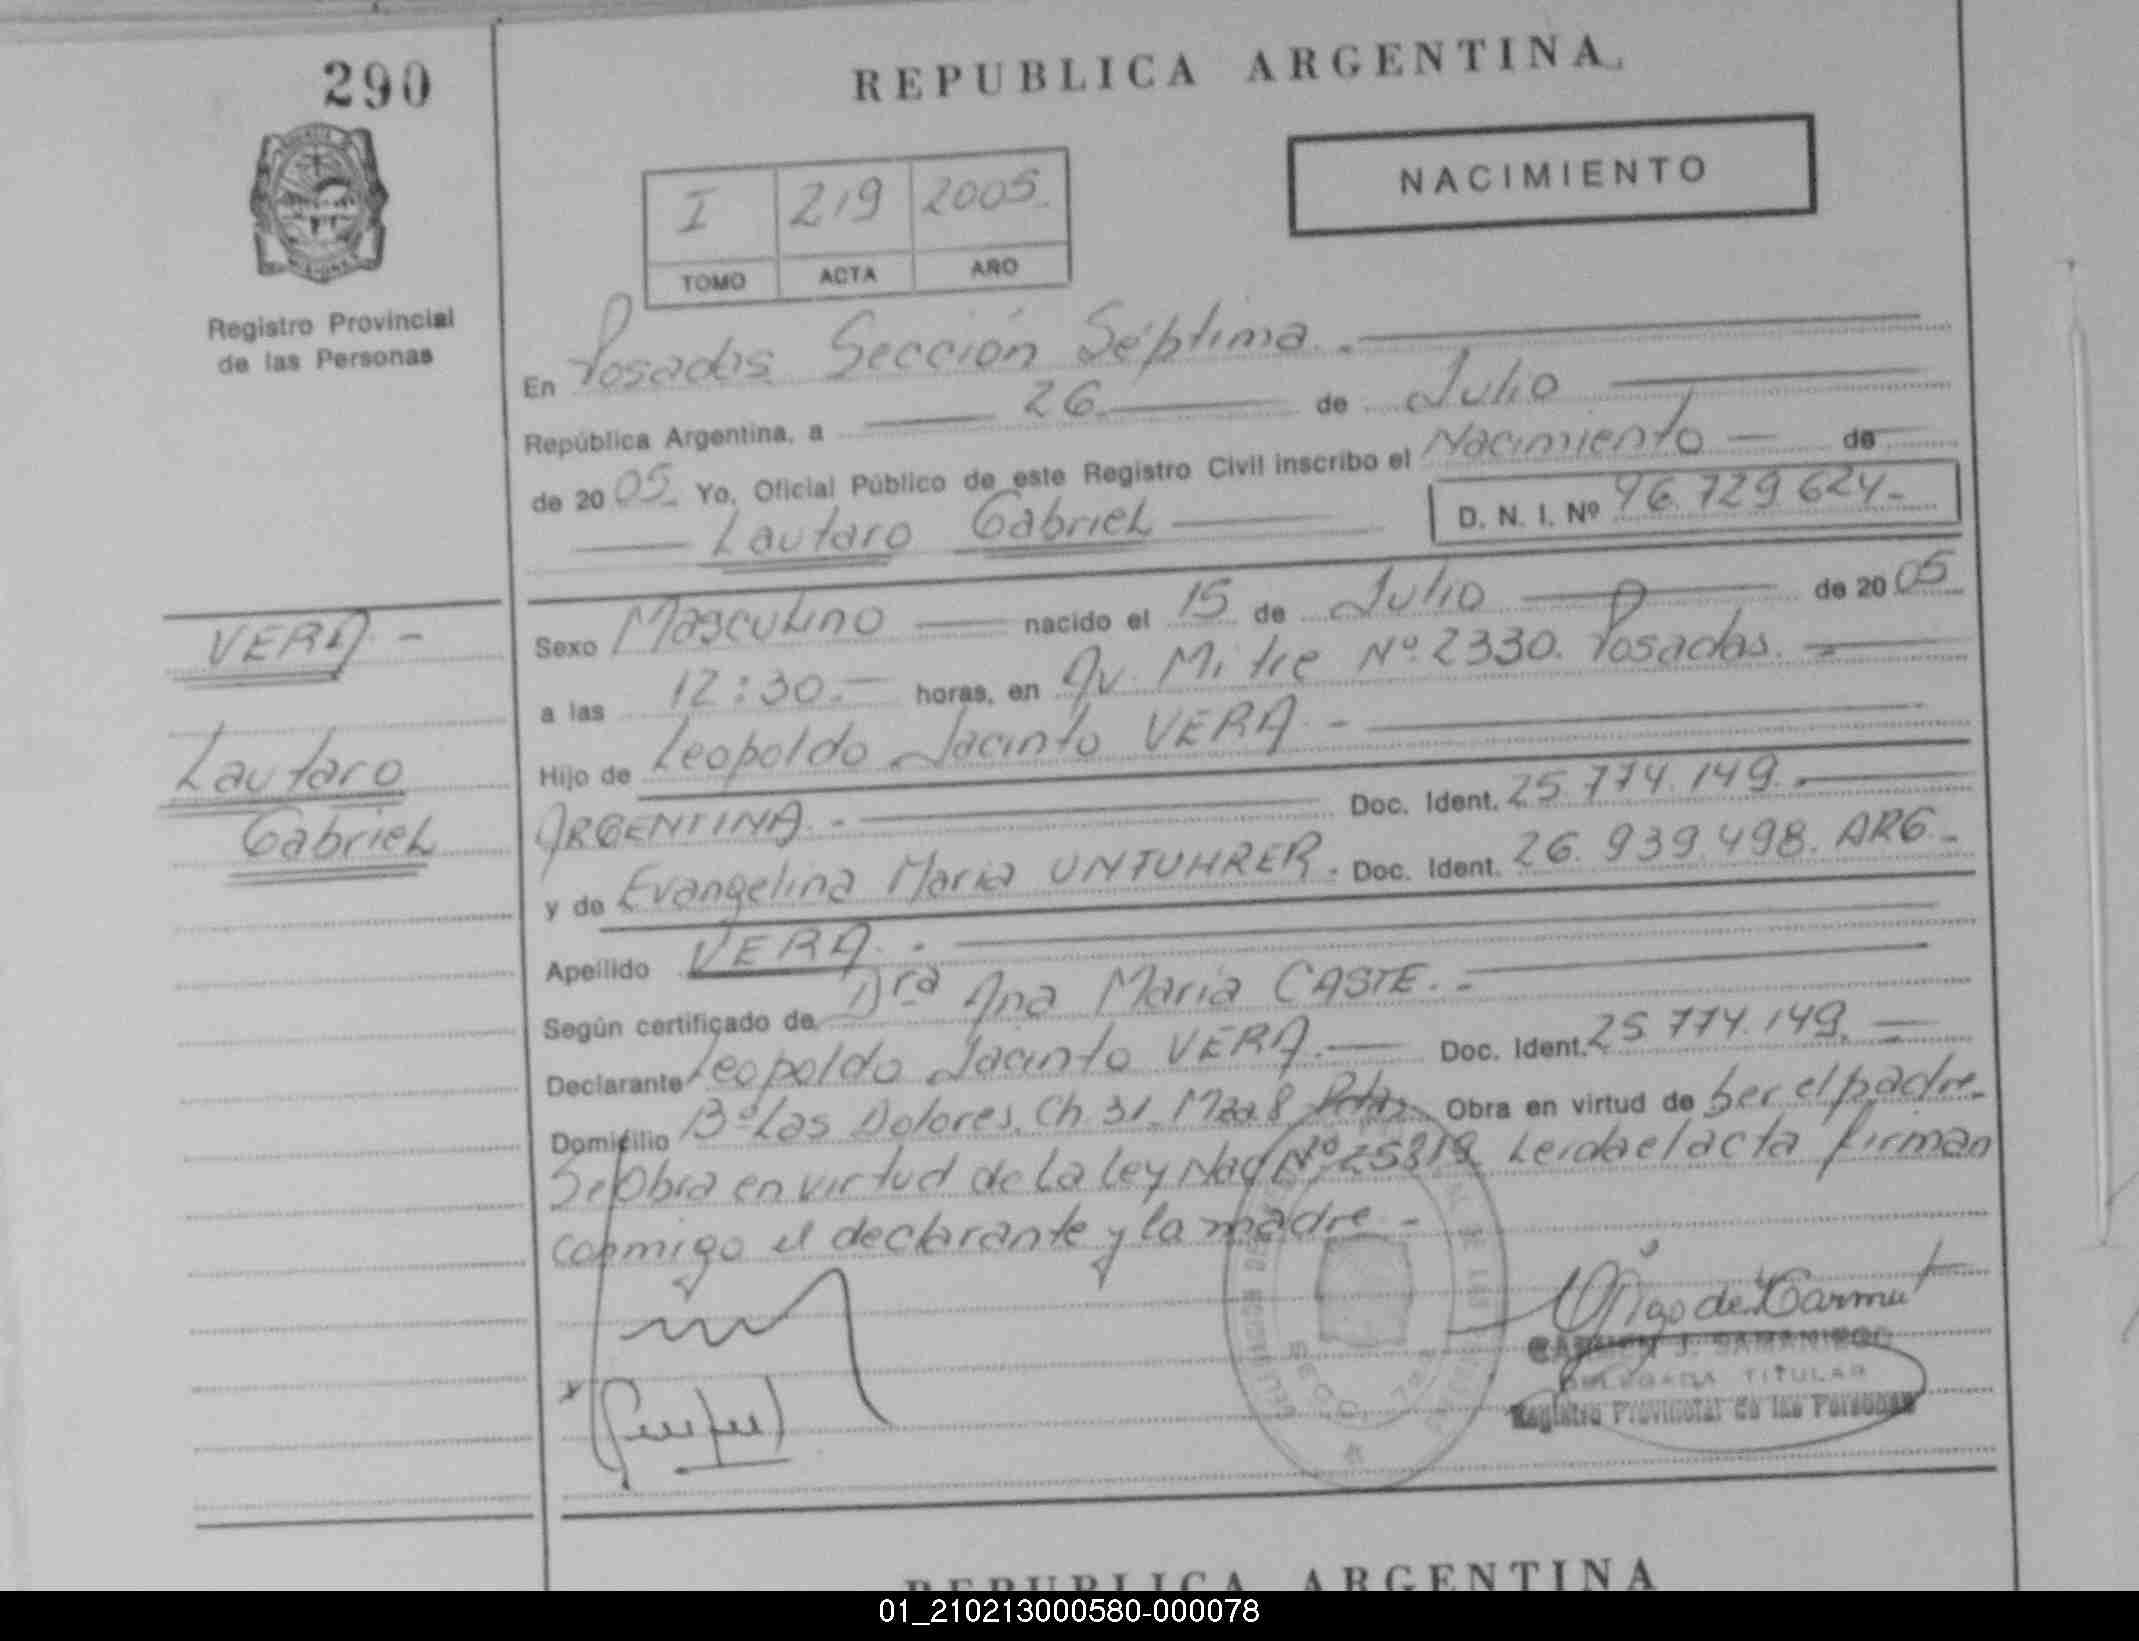 290
REPUBLICA ARGENTINA
NACIMIENTO
I 219 2005
TOMO ACTA AÑO
Registro Provincial
de las Personas
En Posadas Sección Séptima
República Argentina, a 26 de Julio
de 2005 Yo, Oficial Público de este Registro Civil inscribo el Nacimiento de
Lautaro Gabriel D. N. I. Nº 96.729.624
Sexo Masculino nacido el 15 de Julio de 2005
a las 12:30 horas, en Av. Mitre Nº 2330. Posadas.
Hijo de Leopoldo Jacinto VERA
ARGENTINA Doc. Ident. 25.774.149
y de Evangelina Maria UNTUHRER. Doc. Ident. 26.939.498. ARG.
Apellido VERA
Según certificado de Dra Ana Maria CASTE.
Declarante Leopoldo Jacinto VERA Doc. Ident. 25.774.149.
Domicilio Bº Las Dolores. Ch. 31. Mza 8 Pdas Obra en virtud de ser el padre
Se Obra en virtud de la Ley Nac Nº 25819 Leida el acta firman
conmigo el declarante y la madre
VERA
Lautaro
Gabriel
CARMEN J. SAMANIEGO
DELEGADA TITULAR
Registro Provincial de las Personas
REPUBLICA ARGENTINA
01_210213000580-000078